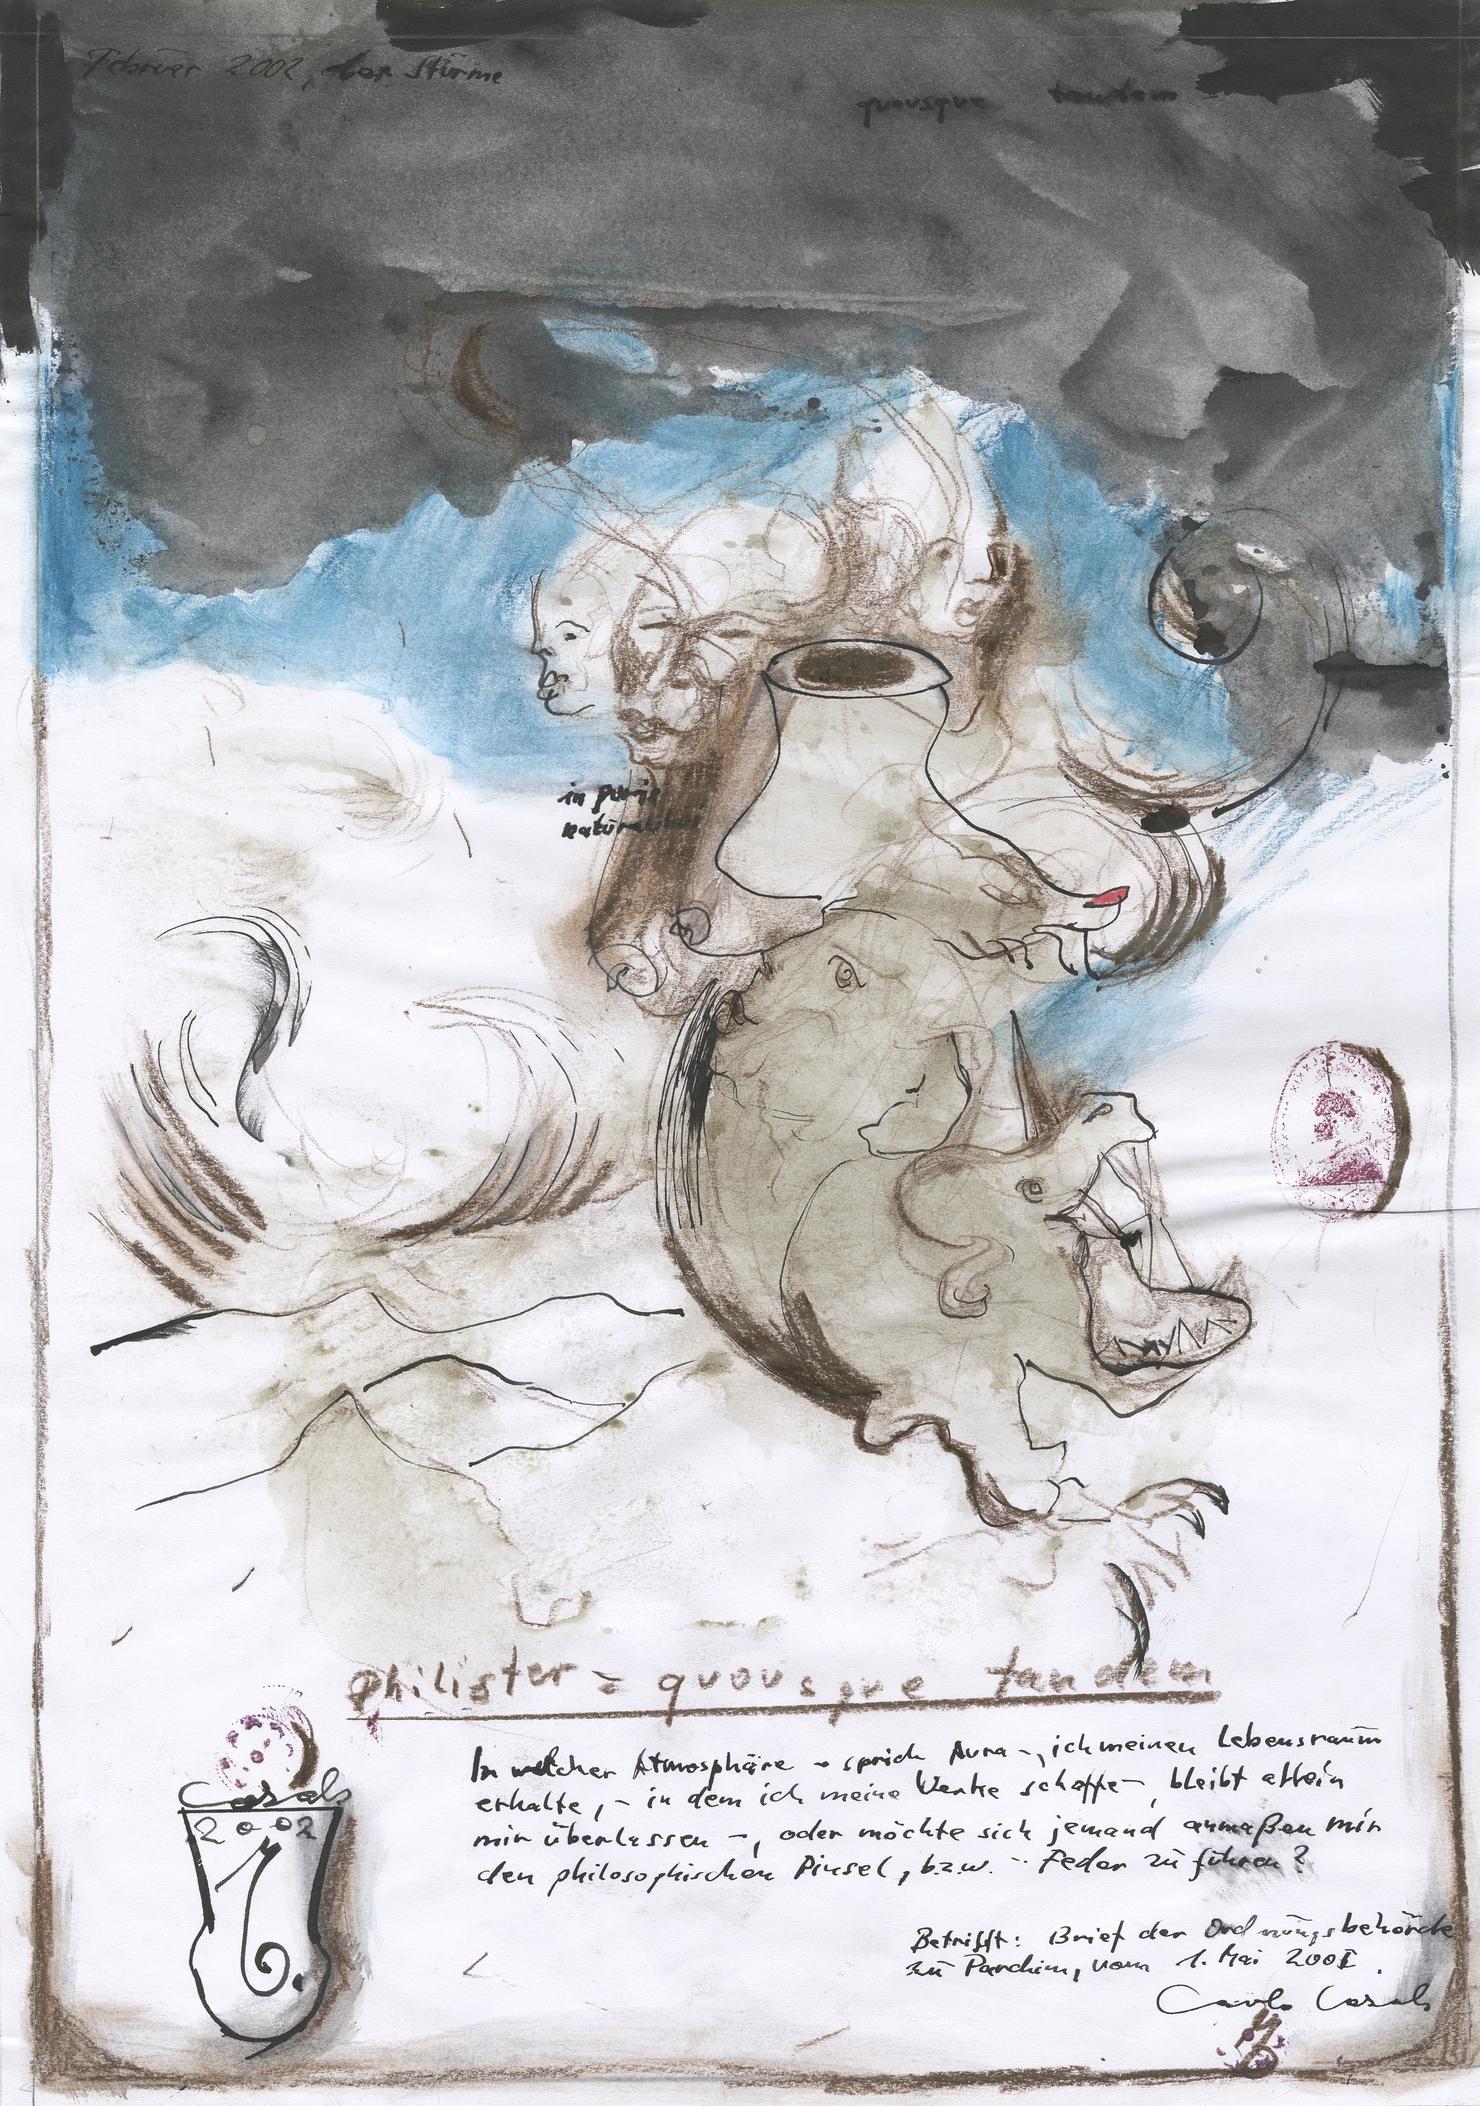 Februar 2002, der Stürme
quousque tandem
in puris
naturalibus
Philister = quousque tandem
In welcher Atmosphäre - sprich Aura -, ich meinen Lebensraum
erhalte, - in dem ich meine Werke schaffe -, bleibt allein
mir überlassen -, oder möchte sich jemand anmaßen mir
den philosophischen Pinsel, b.z.w. - Feder zu führen?
Betrifft: Brief der Ordnungsbehörde
zu Parchim, vom 1. Mai 2001.
Carlo Casals
Casals
2002